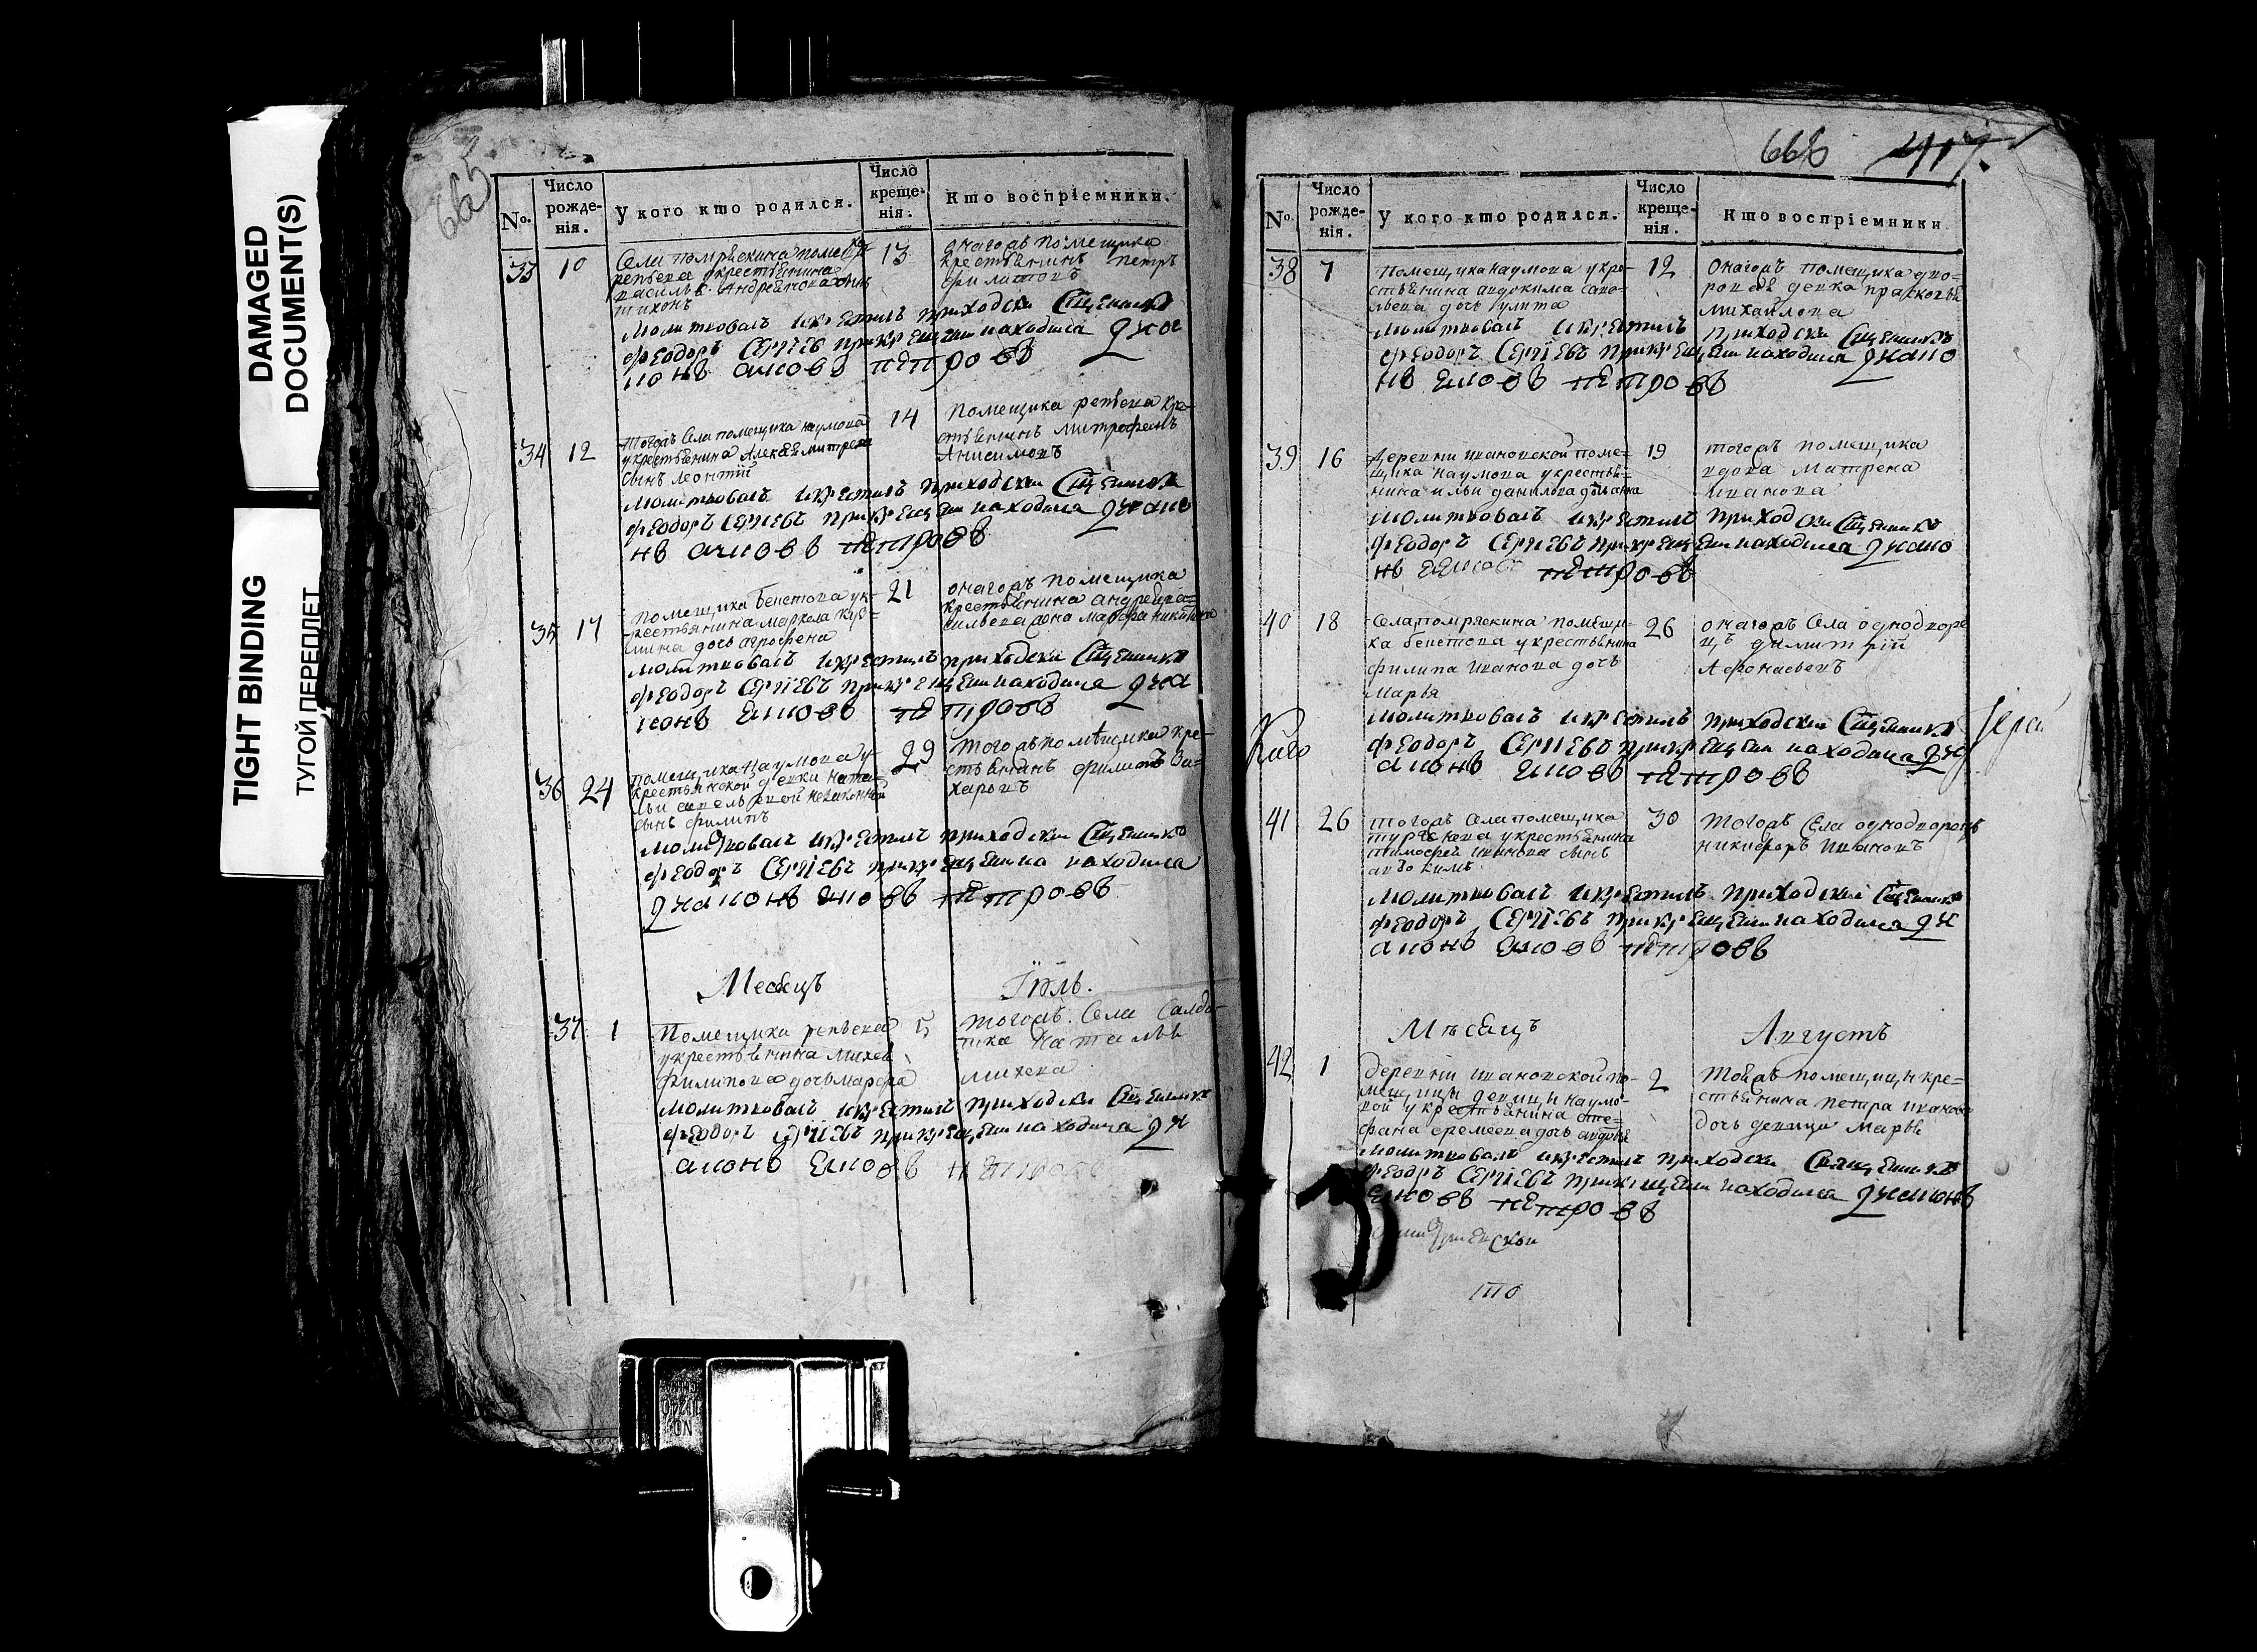 DAMAGED
DOCUMENT(S)
TIGHT BINDING
ТУГОЙ ПЕРЕПЛЕТ
665
No.
Число рожде-нія.
У кого кто родился.
Число креще-нія.
Кто воспріемники.
33 10 Села помряскина
репьева укрестьянина
василья Андреянова сынъ
тихонъ
13 оногожъ помещика
крестьянинъ петръ
филиповъ
молитвовалъ икрестилъ приходски Сщенникъ
феодоръ Сергіевъ прикрещени находился
петровъ
34 12 тогожъ Села помещика наумова
укрестьянина Алексея
сынъ леонтій
14 Помещика репьева кре-
стьянинъ митрофанъ
Анисимовъ
молитвовалъ икрестилъ приходски Сщенникъ
феодоръ Сергіевъ прикрещени находился
петровъ
35 17 помещика бекетова ук-
рестьянина маркела
дочь агрофена
21 оногожъ помещика
крестьянина андрея ва-
сильева жена мавра никитина
молитвовалъ икрестилъ приходски Сщенникъ
феодоръ Сергіевъ прикрещени находился
петровъ
36 24 помещика наумова у
крестьянской девки ната-
льи незаконной
сынъ филипъ
29 тогожъ помещика кре-
стьянинъ филипъ За-
харовъ
молитвовалъ икрестилъ приходски Сщенникъ
феодоръ Сергіевъ прикрещени находился
петровъ
Месецъ Іюль.
37 1 Помещика репьева
укрестьянина михея
филипова дочь марфа
5 тогожъ Села Салда-
тка наталья
михева
молитвовалъ икрестилъ приходски Сщенникъ
феодоръ Сергіевъ прикрещени находился
668 417.
No.
Число рожде-нія.
У кого кто родился.
Число креще-нія.
Кто воспріемники
38 7 помещика наумова укре-
стьянина авдокима саве-
льева дочь улита
12 оногожъ помещика дво-
ровая девка прасковья
михайлова
молитвовалъ икрестилъ приходски Сщенникъ
феодоръ Сергіевъ прикрещени находился
петровъ
39 16 деревни ивановской поме-
щика наумова укрестья-
нина ильи данилова дочь анна
19 тогожъ помещика
вдова матрена
иванова
молитвовалъ икрестилъ приходски Сщенникъ
феодоръ Сергіевъ прикрещени находился
петровъ
40 18 Села помряскина помещи-
ка бекетова укрестьянина
филипа иванова дочь
марья
26 оногожъ Села однодворе
цъ димитрій
Афонасьевъ
молитвовалъ икрестилъ приходски Сщенникъ
феодоръ Сергіевъ прикрещени находился
петровъ
41 26 тогожъ Села помещика
укрестьянина
тимофея иванова сынъ
авдокимъ
30 тогожъ Села однодворецъ
никифоръ ивановъ
молитвовалъ икрестилъ приходскій Сщенникъ
феодоръ Сергіевъ прикрещени находился
петровъ
Мѣсяцъ Августъ
42 1 деревни ивановской по-
мещицы девицы наумо-
вой укрестьянина сте-
фана еремеева дочь авдотья
2 тойжъ помещицы кре-
стьянина петра иванова
дочь девица марья
молитвовалъ икрестилъ приходски Священникъ
феодоръ Сергіевъ прикрещени находился
петровъ